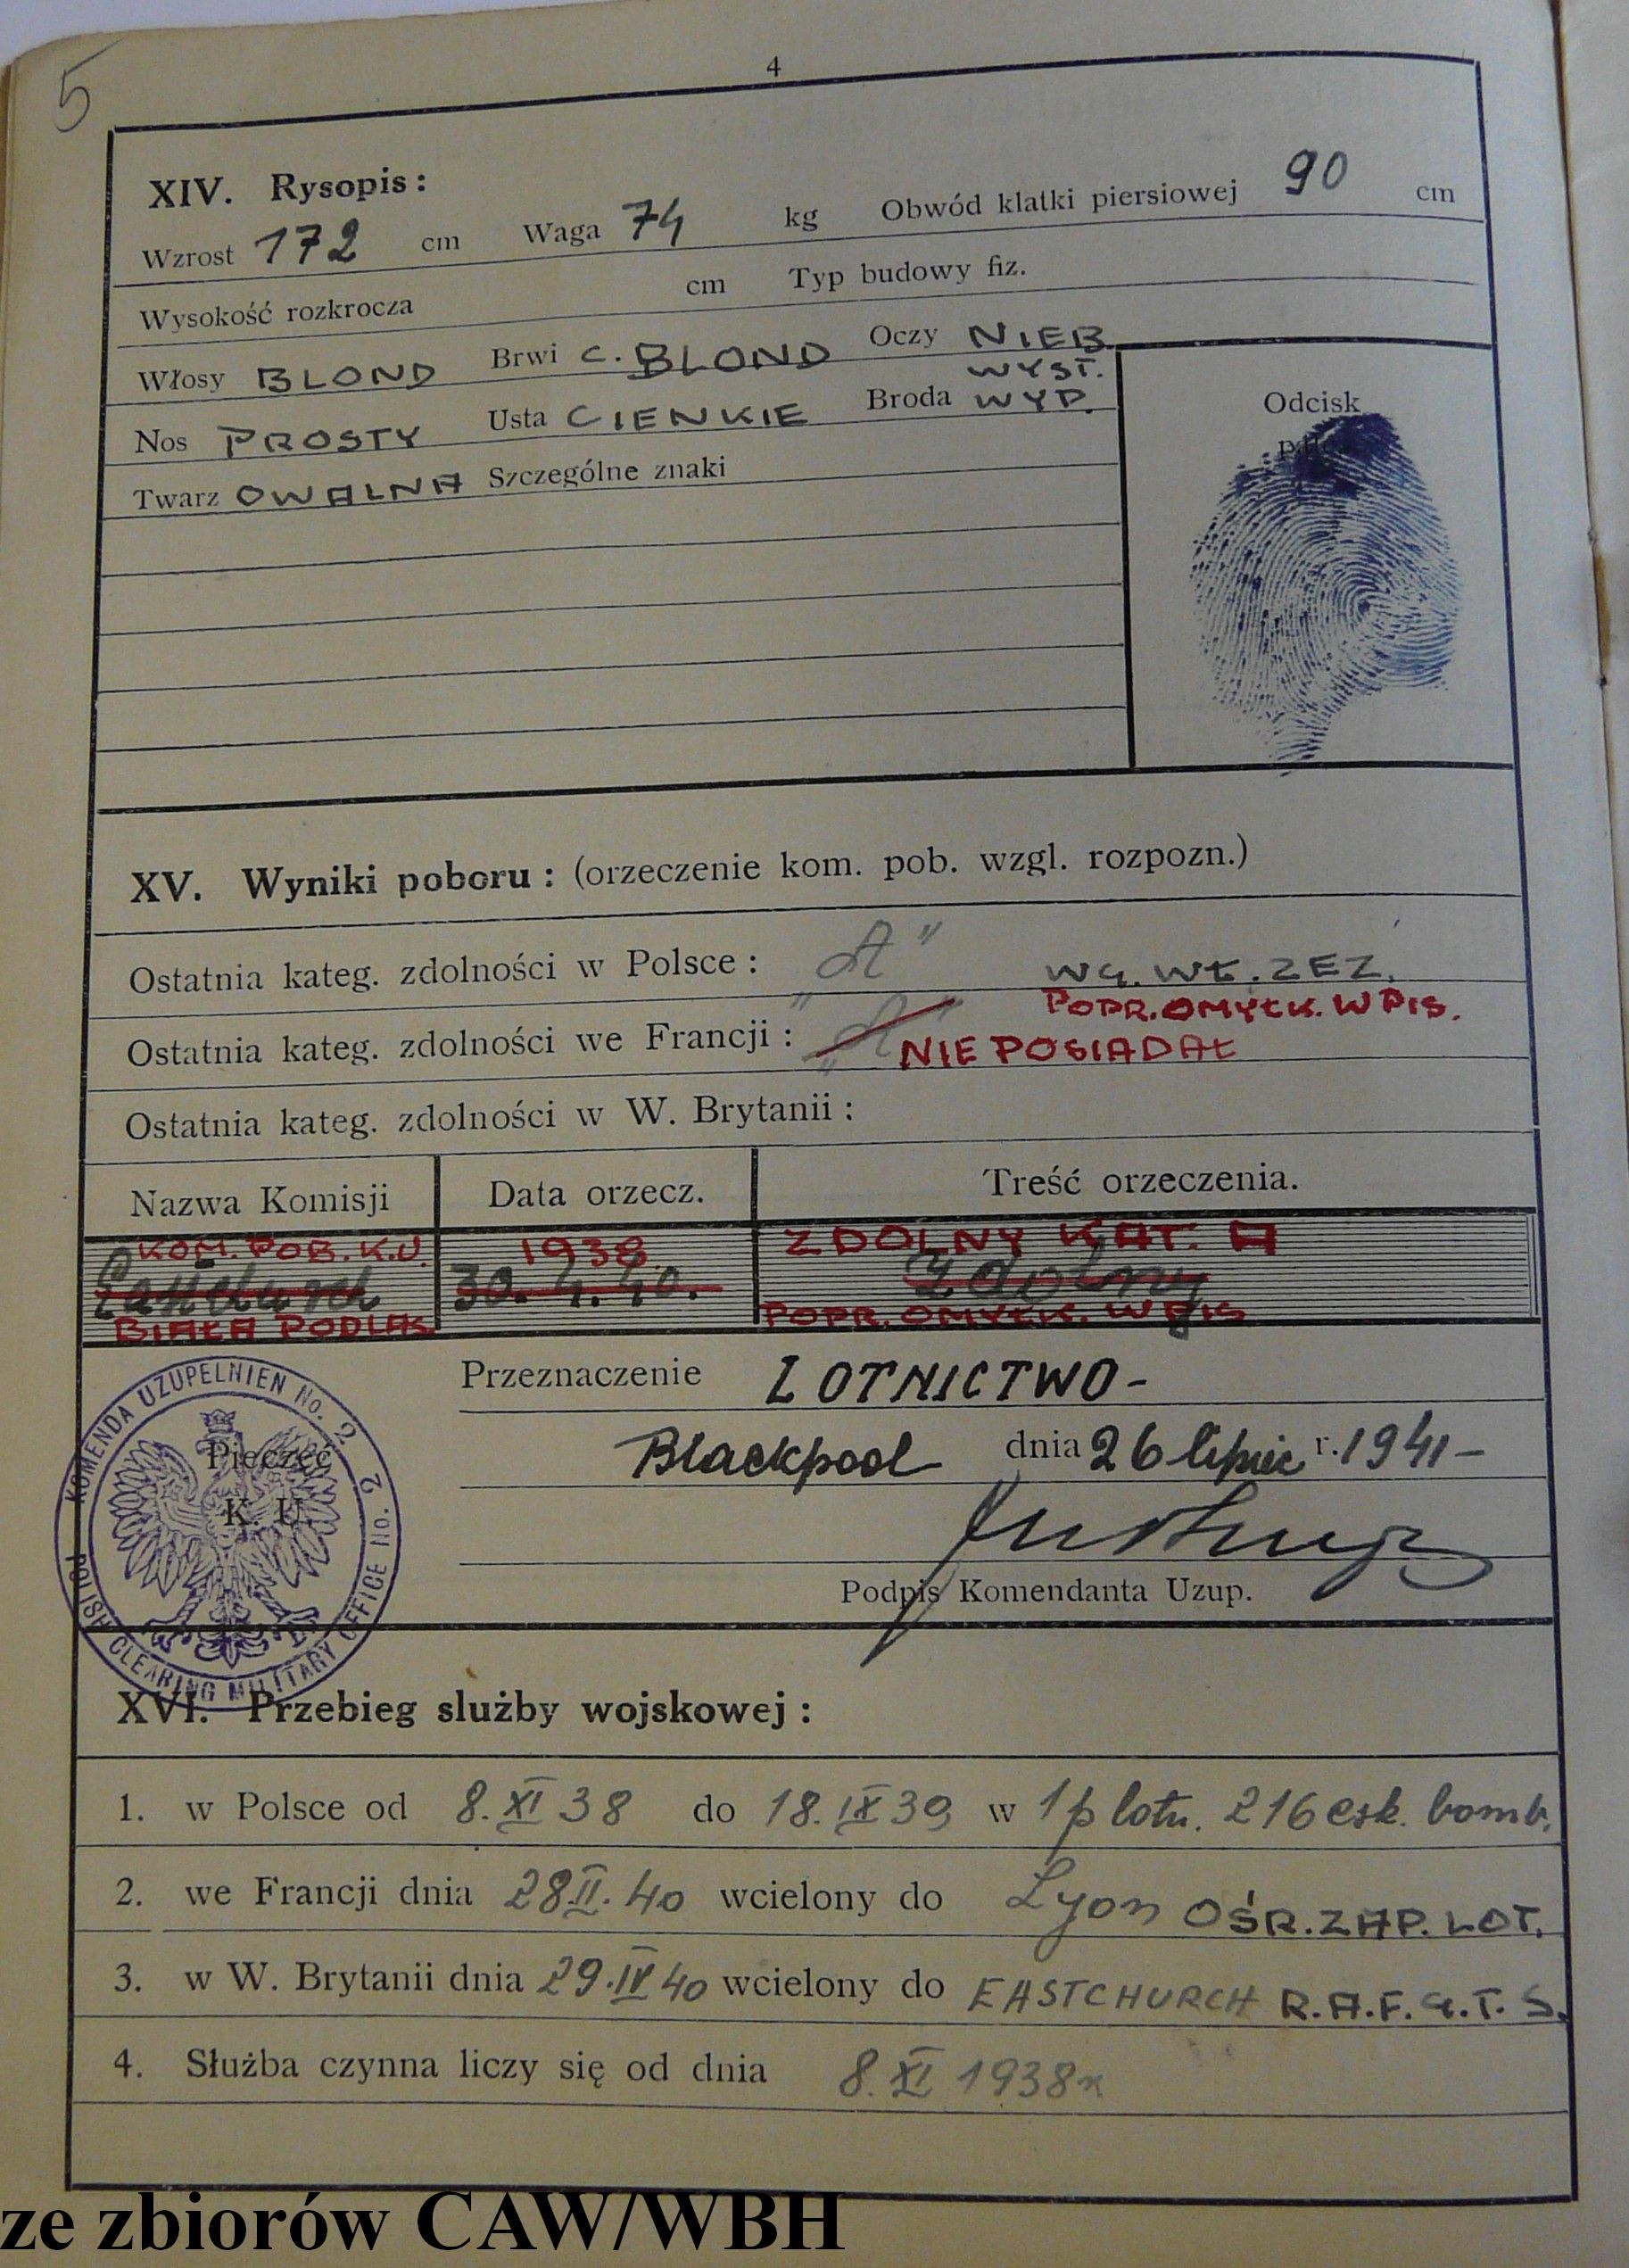 5
4
XIV. Rysopis:
Wzrost 172 cm Waga 74 kg Obwód klatki piersiowej 90 cm
Wysokość rozkrocza cm Typ budowy fiz.
Włosy BLOND Brwi C. BLOND Oczy NIEB.
Nos PROSTY Usta CIENKIE Broda WYST. WYP.
Twarz OWALNA Szczególne znaki
Odcisk
XV. Wyniki poboru: (orzeczenie kom. pob. wzgl. rozpozn.)
Ostatnia kateg. zdolności w Polsce: "A" WG. WŁ. ZEZ.
POPR. OMYŁK. WPIS.
Ostatnia kateg. zdolności we Francji: "A" NIE POSIADAŁ
Ostatnia kateg. zdolności w W. Brytanii:
Nazwa Komisji Data orzecz. Treść orzeczenia.
KOM. POB. K.U. 1938 ZDOLNY KAT. A
30. 4. 40. Zdolny
BIAŁA PODLAS. POPR. OMYŁK. WPIS
Przeznaczenie LOTNICTWO-
Blackpool dnia 26 lipiec r. 1941-
KOMENDA UZUPEŁNIEN No. 2
POLISH CLEARING MILITARY OFFICE No. 2
Pieczęć
K. U.
Podpis Komendanta Uzup.
XVI. Przebieg służby wojskowej:
1. w Polsce od 8.XI 38 do 18.IX 39 w 1 p lotn. 216 esk. bomb.
2. we Francji dnia 28 II. 40 wcielony do Lyon OŚR. ZAP. LOT.
3. w W. Brytanii dnia 29.IV 40 wcielony do EASTCHURCH R.A.F. G.T.S.
4. Służba czynna liczy się od dnia 8. XI 1938r
ze zbiorów CAW/WBH